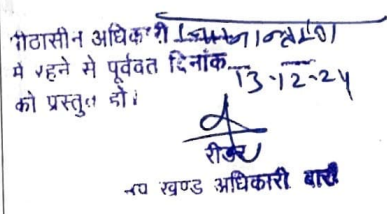 पीठासीन अधिकारी
में रहने से पूर्ववत दिनांक 13-12-24
को प्रस्तुत हो।
रीडर
उप खण्ड अधिकारी बारी